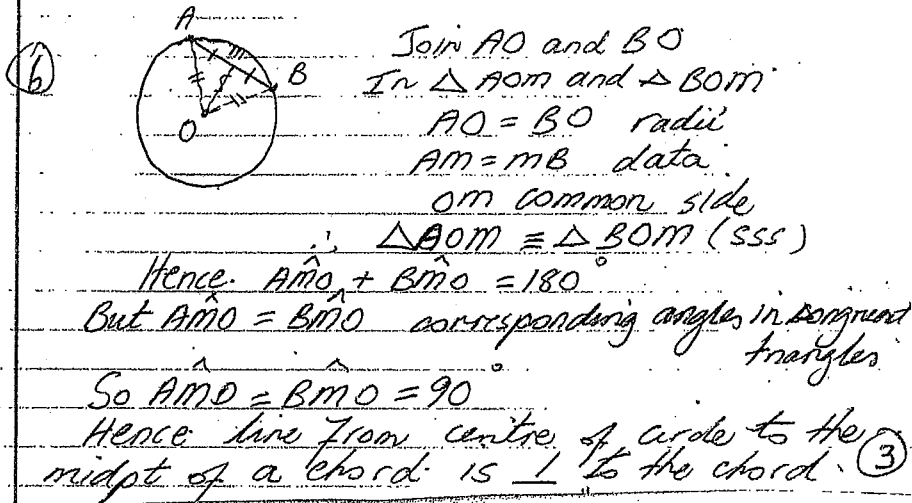 A
m
B
O
⑥
Join AO and BO
In △ AOM and △ BOM
AO = BO radii
AM = MB data
OM common side
∴ △AOM ≡ △ BOM (SSS)
Hence. AM̂O + BM̂O = 180°
But AM̂O = BM̂O corresponding angles in congruent
triangles
So AM̂O = BM̂O = 90°
Hence line from centre of circle to the
midpt of a chord is ⊥ to the chord. ③